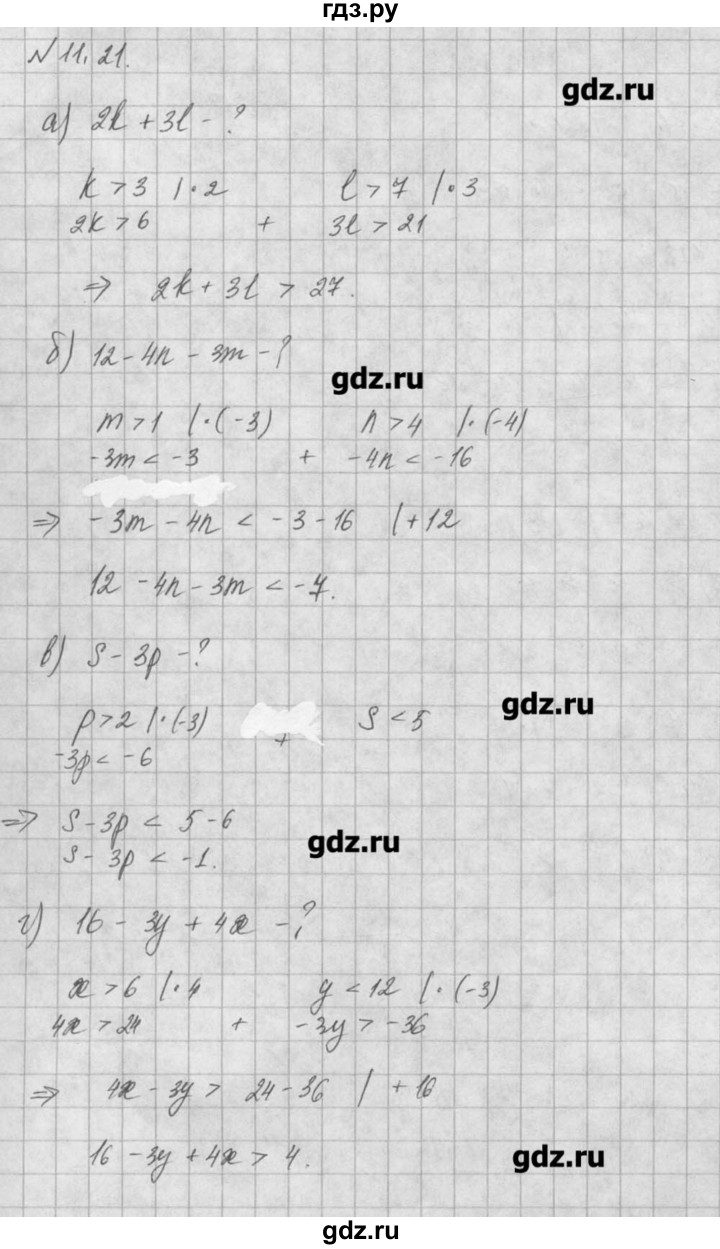 гдз.ру
№11.21.
gdz.ru
а) 2k + 3l - ?
k > 3 | · 2     l > 7 | · 3
2k > 6     +     3l > 21
⇒ 2k + 3l > 27.
б) 12 - 4n - 3m - ?
gdz.ru
m > 1 | · (-3)     n > 4 | · (-4)
-3m < -3     +     -4n < -16
⇒ -3m - 4n < -3 - 16 | + 12
12 - 4n - 3m < -7.
в) s - 3p - ?
gdz.ru
p > 2 | · (-3)     s < 5
+
-3p < -6
⇒ s - 3p < 5 - 6
gdz.ru
s - 3p < -1.
г) 16 - 3y + 4x - ?
x > 6 | · 4     y < 12 | · (-3)
4x > 24     +     -3y > -36
⇒ 4x - 3y > 24 - 36 | + 16
16 - 3y + 4x > 4.
gdz.ru
gdz.ru